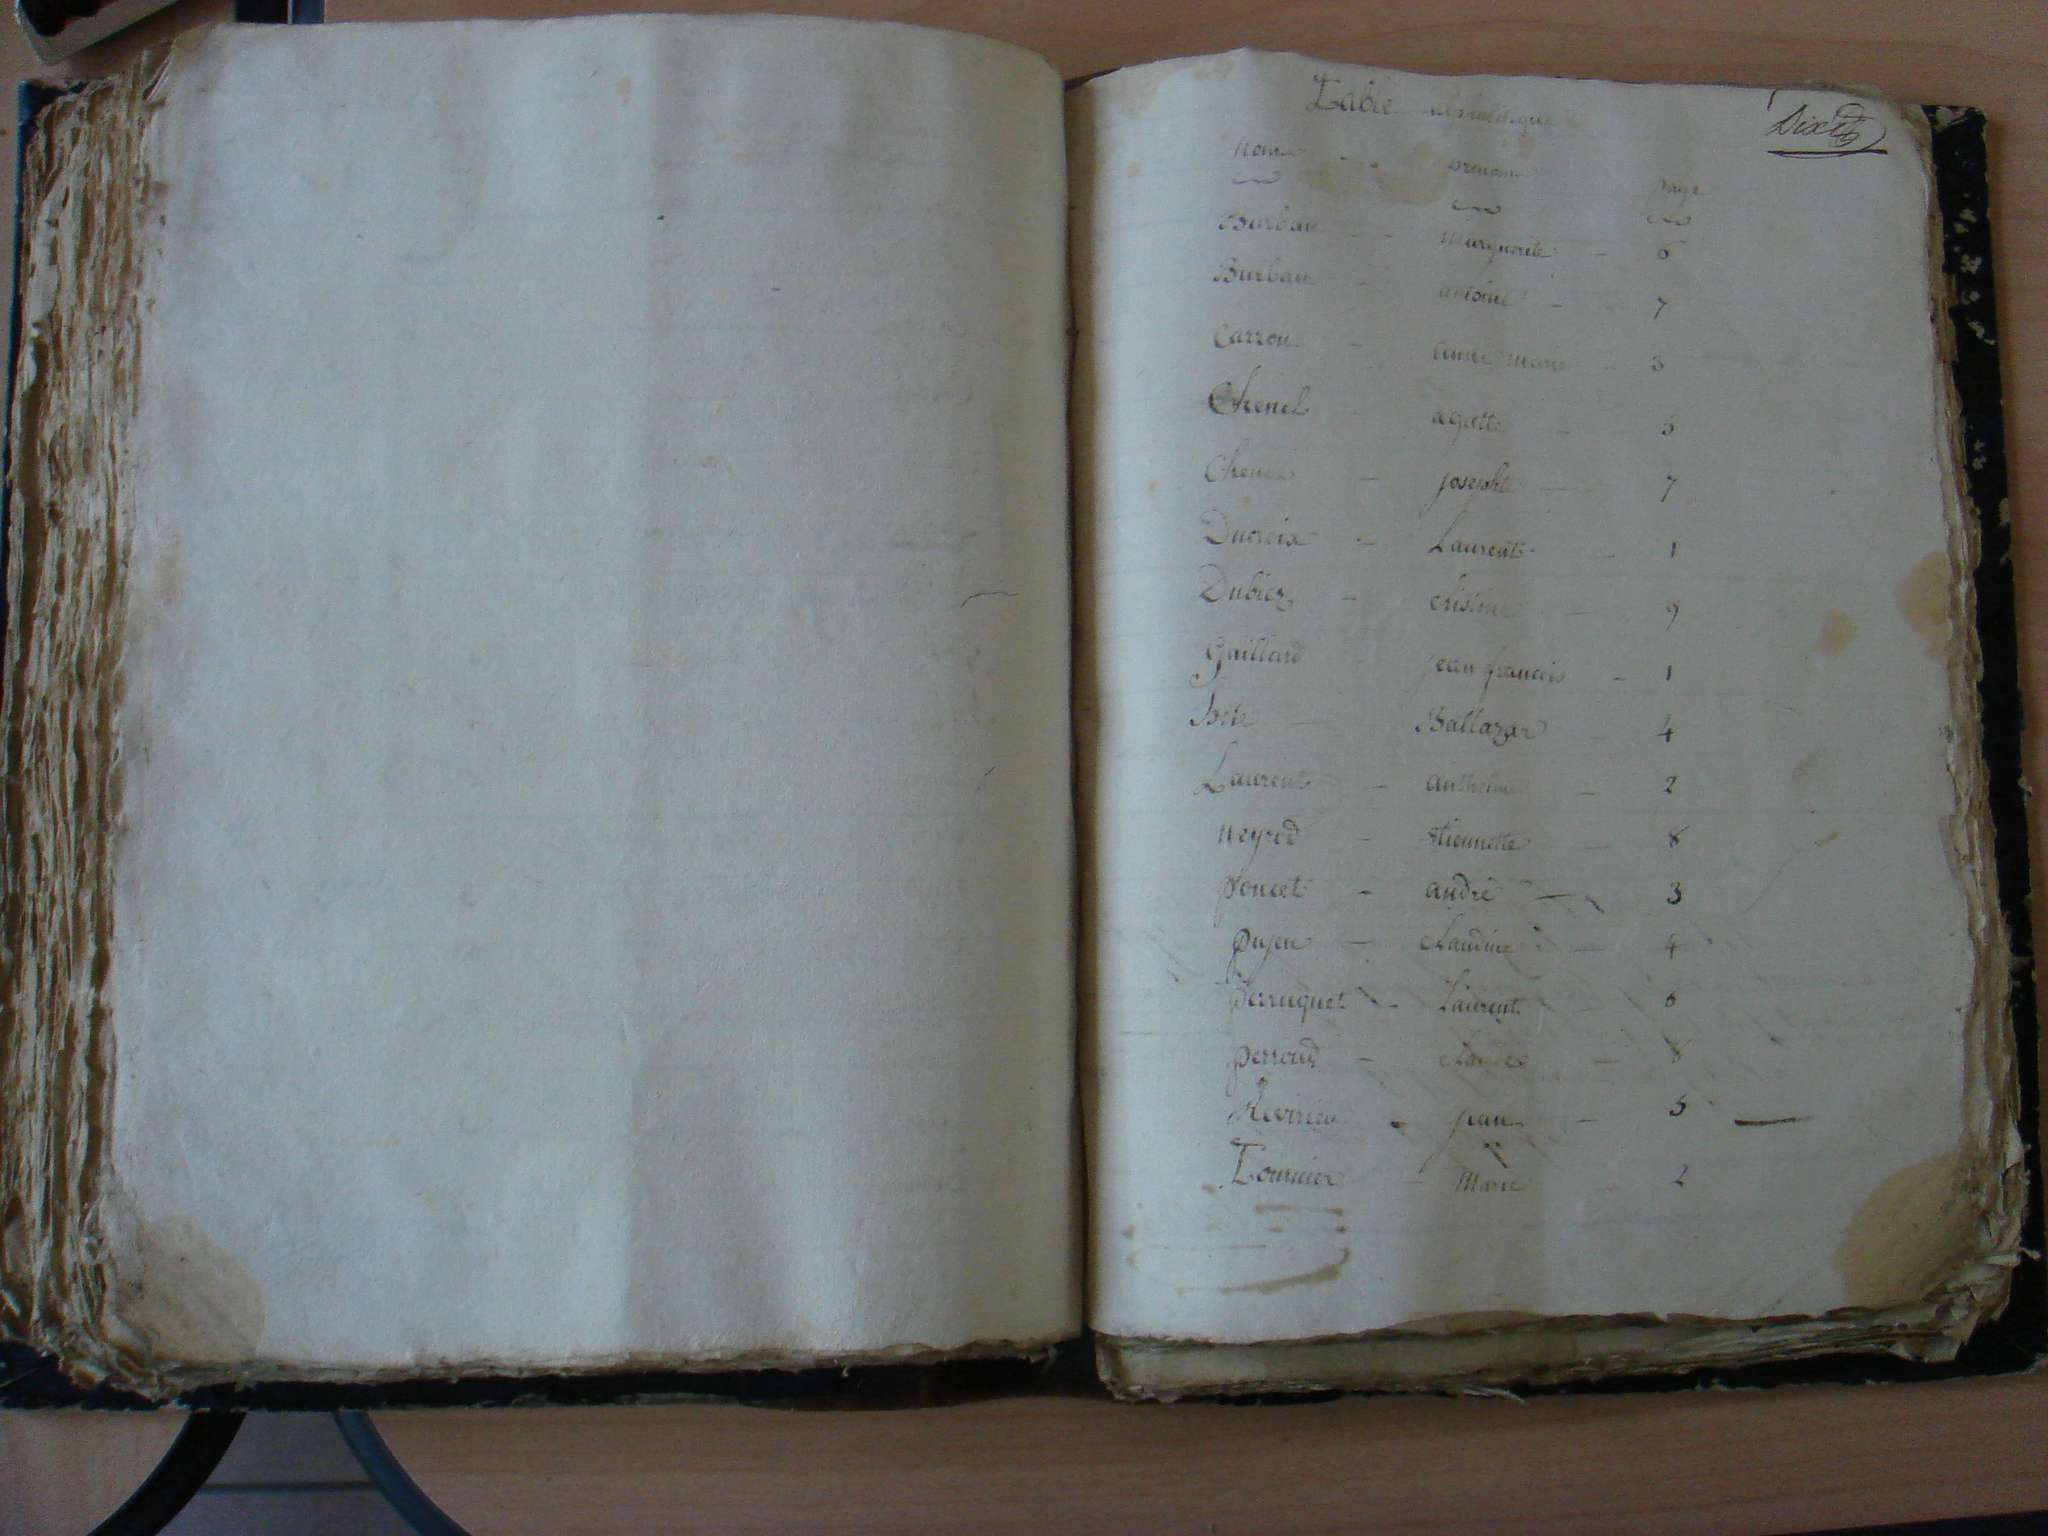 Dix
Table alphabétique
Noms prenoms page
Burban Marguerite 6
Burban antoine 7
Carron anne marie 3
Chenel agatte 5
Chenel josephte 7
Ducroix Laurent 1
Dubiez cristine 9
Gaillard jean francois 1
Baltazar 4
Laurent anthelme 2
Neyred Etiennette 8
poncet andré 3
pujeu Claudine 4
perruquet Laurent 6
perroud Claude 8
Revirieu jean 5
Tournier Marie 2